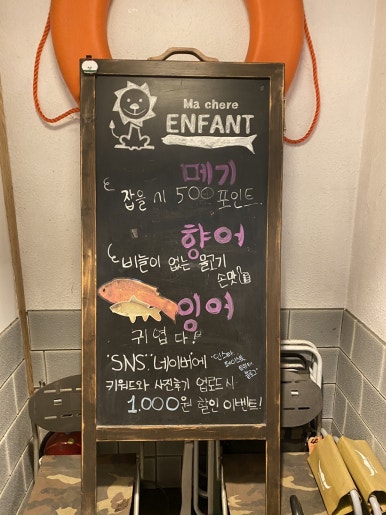 Ma chere
ENFANT
메기
잡을 시 500 포인트
향어
비늘이 없는 물고기
손맛
잉어
귀엽다!
"SNS" 네이버에
키워드와 사진후기 업로드시
1,000원 할인 이벤트!